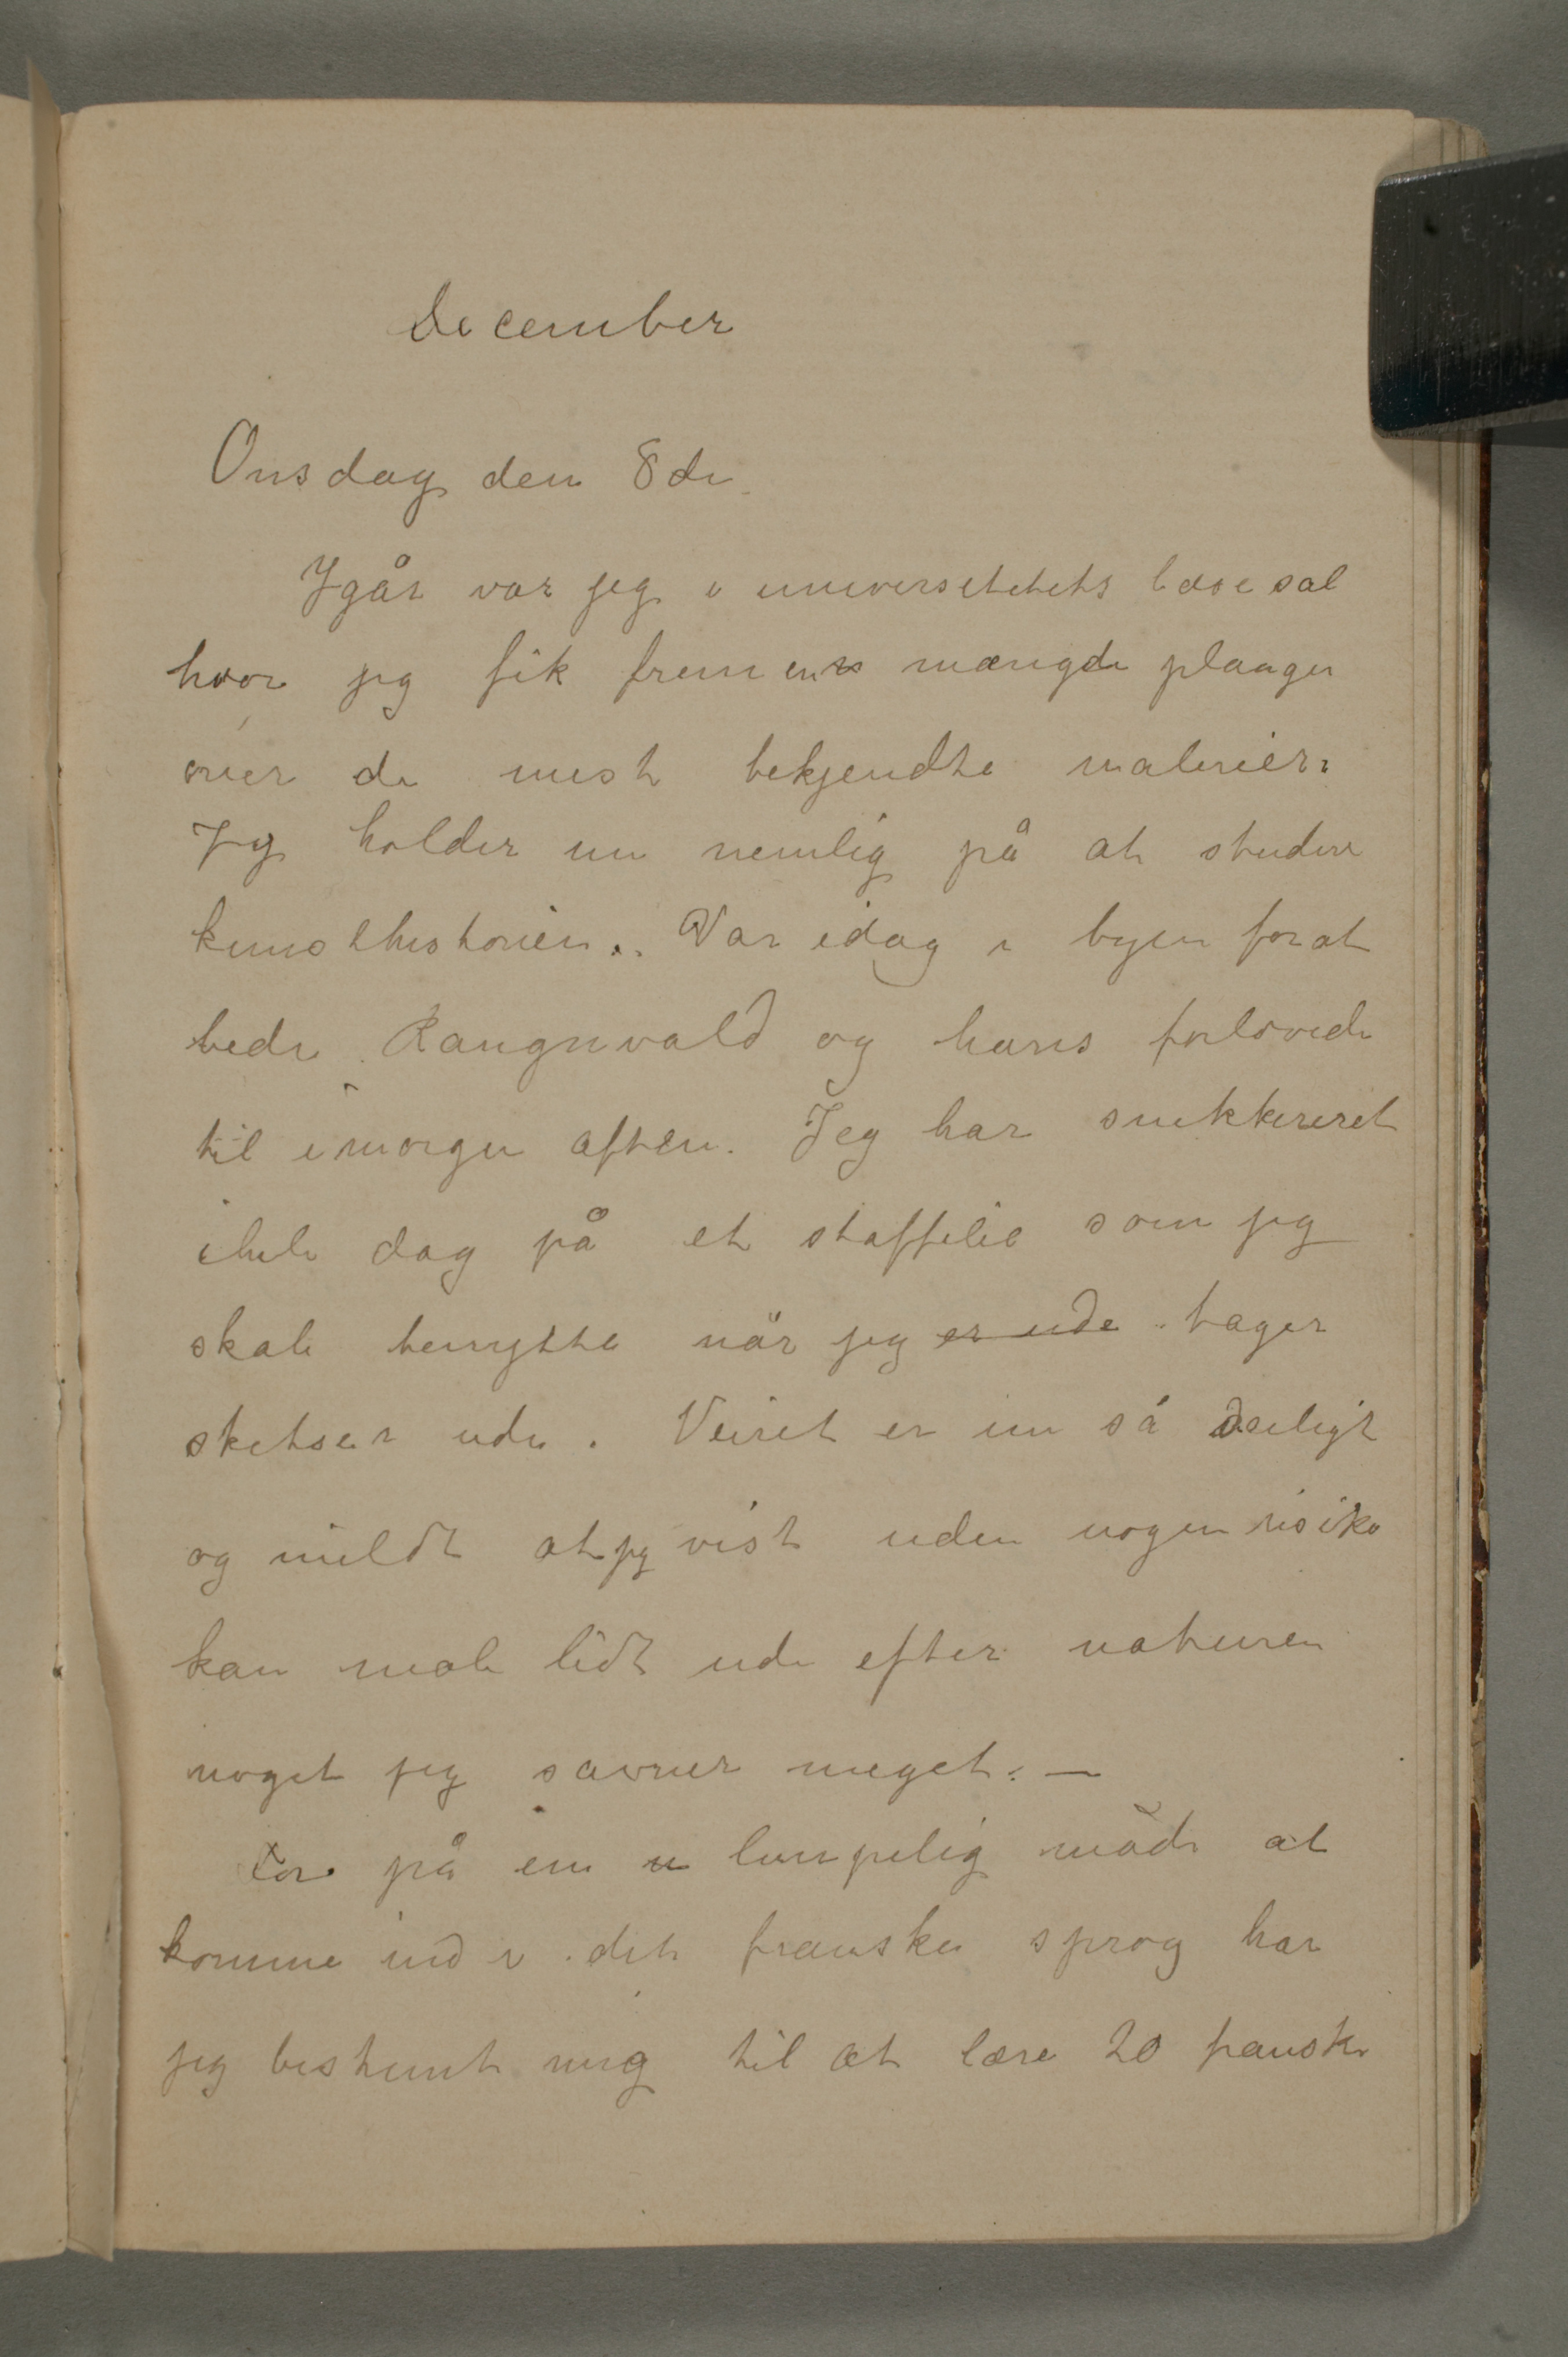 December
Onsdag den 8de
Igår var jeg i universitetets læsesal
hvor jeg fik frem en mængde plancher
over de mest bekjendte malerier.
Jeg holder nu nemlig på at studere
kunsthistorien. Var idag i byen forat
bede Rangnvald og hans forlovede
til imorgen aften. Jeg har snekkereret
ihele dag på et staffelie som jeg
skale benytte når jeg er ude tager
skitser ude. Veiret er nu så deiligt
og mildt at jeg vist uden nogen risiko
kan male lidt ude efter naturen
noget jeg savner meget. —
For på en lempelig måde at
komme ind i det franske sprog har
jeg bestemt mig til at lære 20 franske